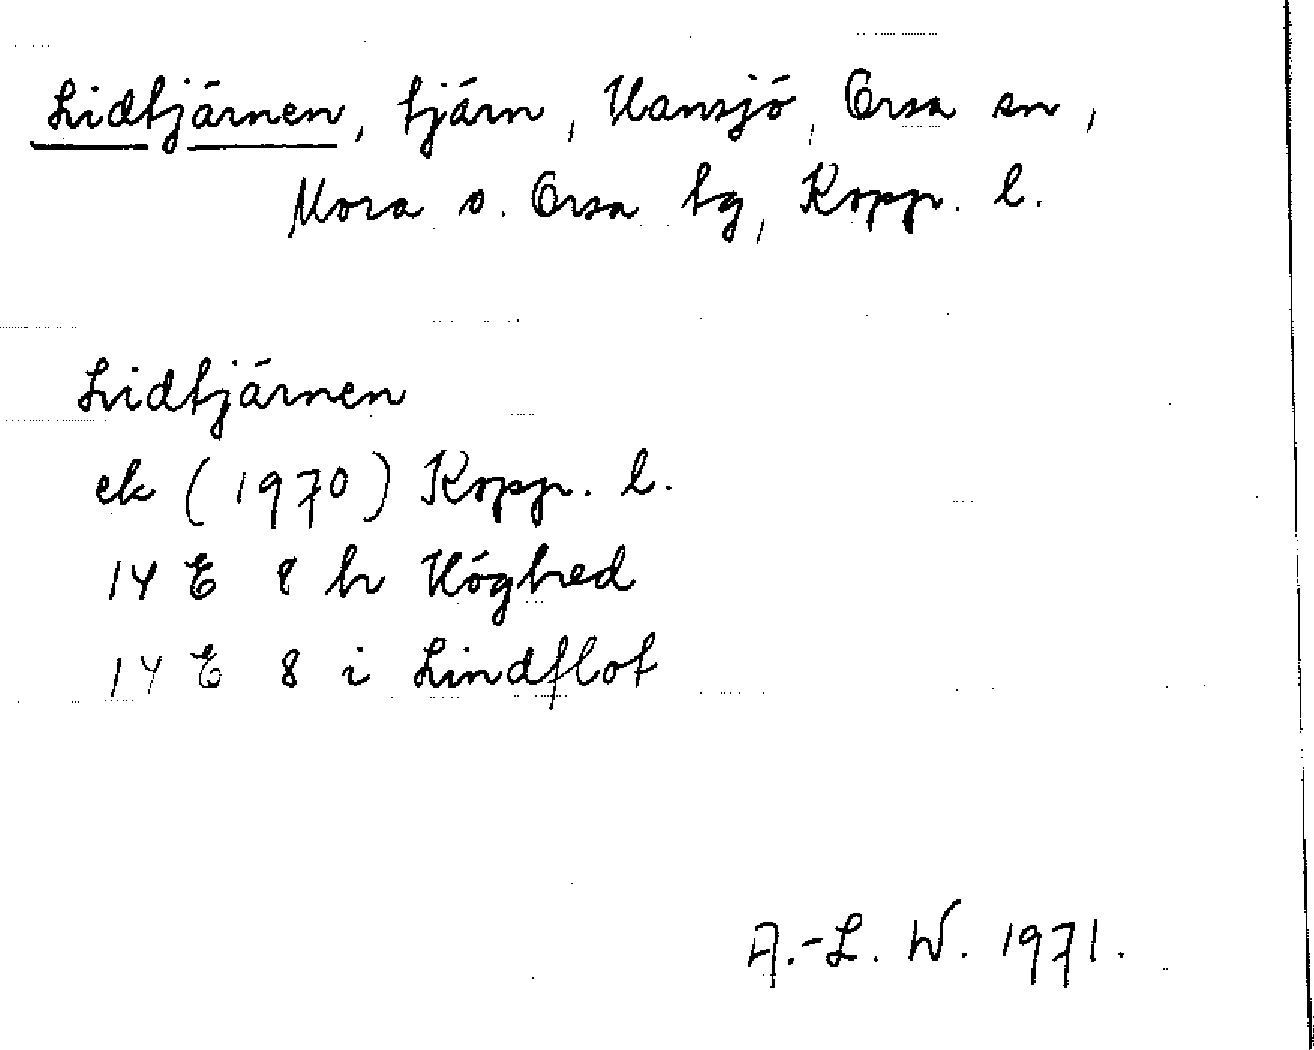 Lidtjärnen, tjärn, Hansjö, Orsa sn,
Mora o. Orsa tg, Kopp. l.
Lidtjärnen
ek (1970) Kopp. l.
14 E 8 h Höghed
14 E 8 i Lindflot
A.-L. W. 1971.